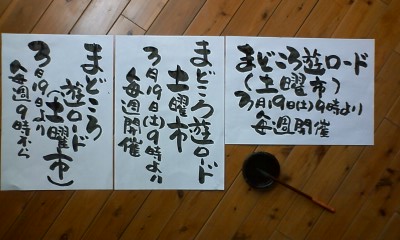 まどころ
遊ロード
(土曜市)
3月19日より
毎週9時から
まどころ遊ロード
土曜市
3月19日(土)9時より
毎週開催
まどころ遊ロード
(土曜市)
3月19日(土)9時より
毎週開催